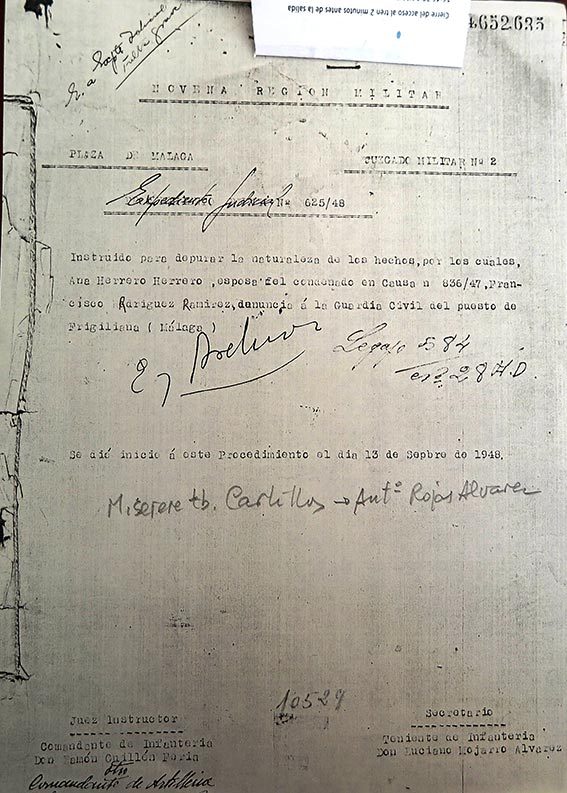 Cierre del acceso al tren 2 minutos antes de la salida
4652.635
NOVENA REGION MILITAR
PLAZA DE MALAGA
JUZGADO MILITAR Nº 2
Expediente Judicial Nº 625/48
Instruido para depurar la naturaleza de los hechos,por los cuales,
Ana Herrero Herrero ,esposa del condenado en Causa n 836/47,Fran-
cisco Rdriguez Ramirez,denuncia á la Guardia Civil del puesto de
Frigiliana ( Málaga )
Legajo 584
28 H.D.
Se dió inicio á este Procedimiento el día 13 de Sepbre de 1948.
Miserere tb. Carlillos → Antº Rojas Alvarez
10529
Juez Instructor
Comandante de Infanteria
Don Ramón Guillón Feria
Comandante de Artilleria
Secretario
Teniente de Infanteria
Don Luciano Mojarro Alvarez